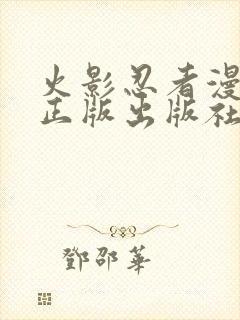 火影忍者漫
正版出版社
鄧邵華